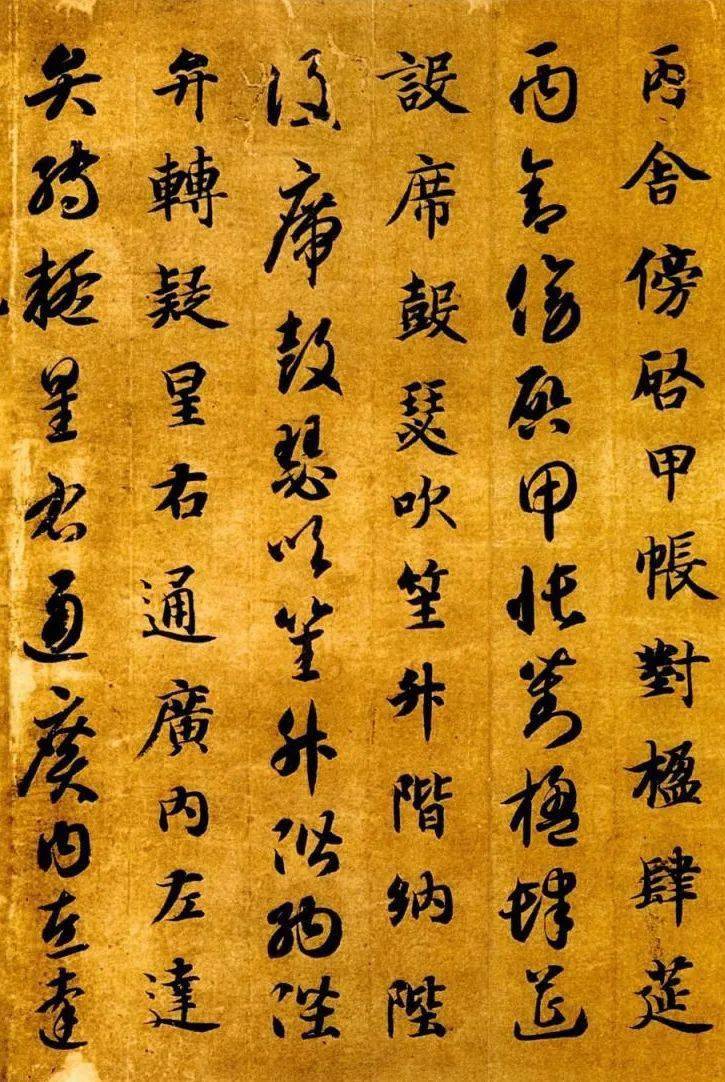 丙舍傍启甲帳對楹肆筵
丙舍傍啓甲帳對楹肆筵
設席鼓瑟吹笙升階納陛
設席鼓瑟吹笙升階納陛
弁轉疑星右通廣内左達
弁轉疑星右通廣内左達